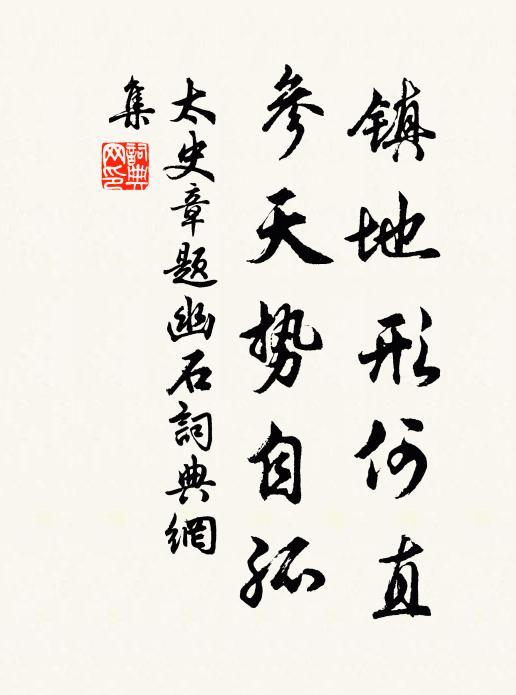 镇地形何直
参天势自孤
太史章题幽石詞典網
集
詞典网印